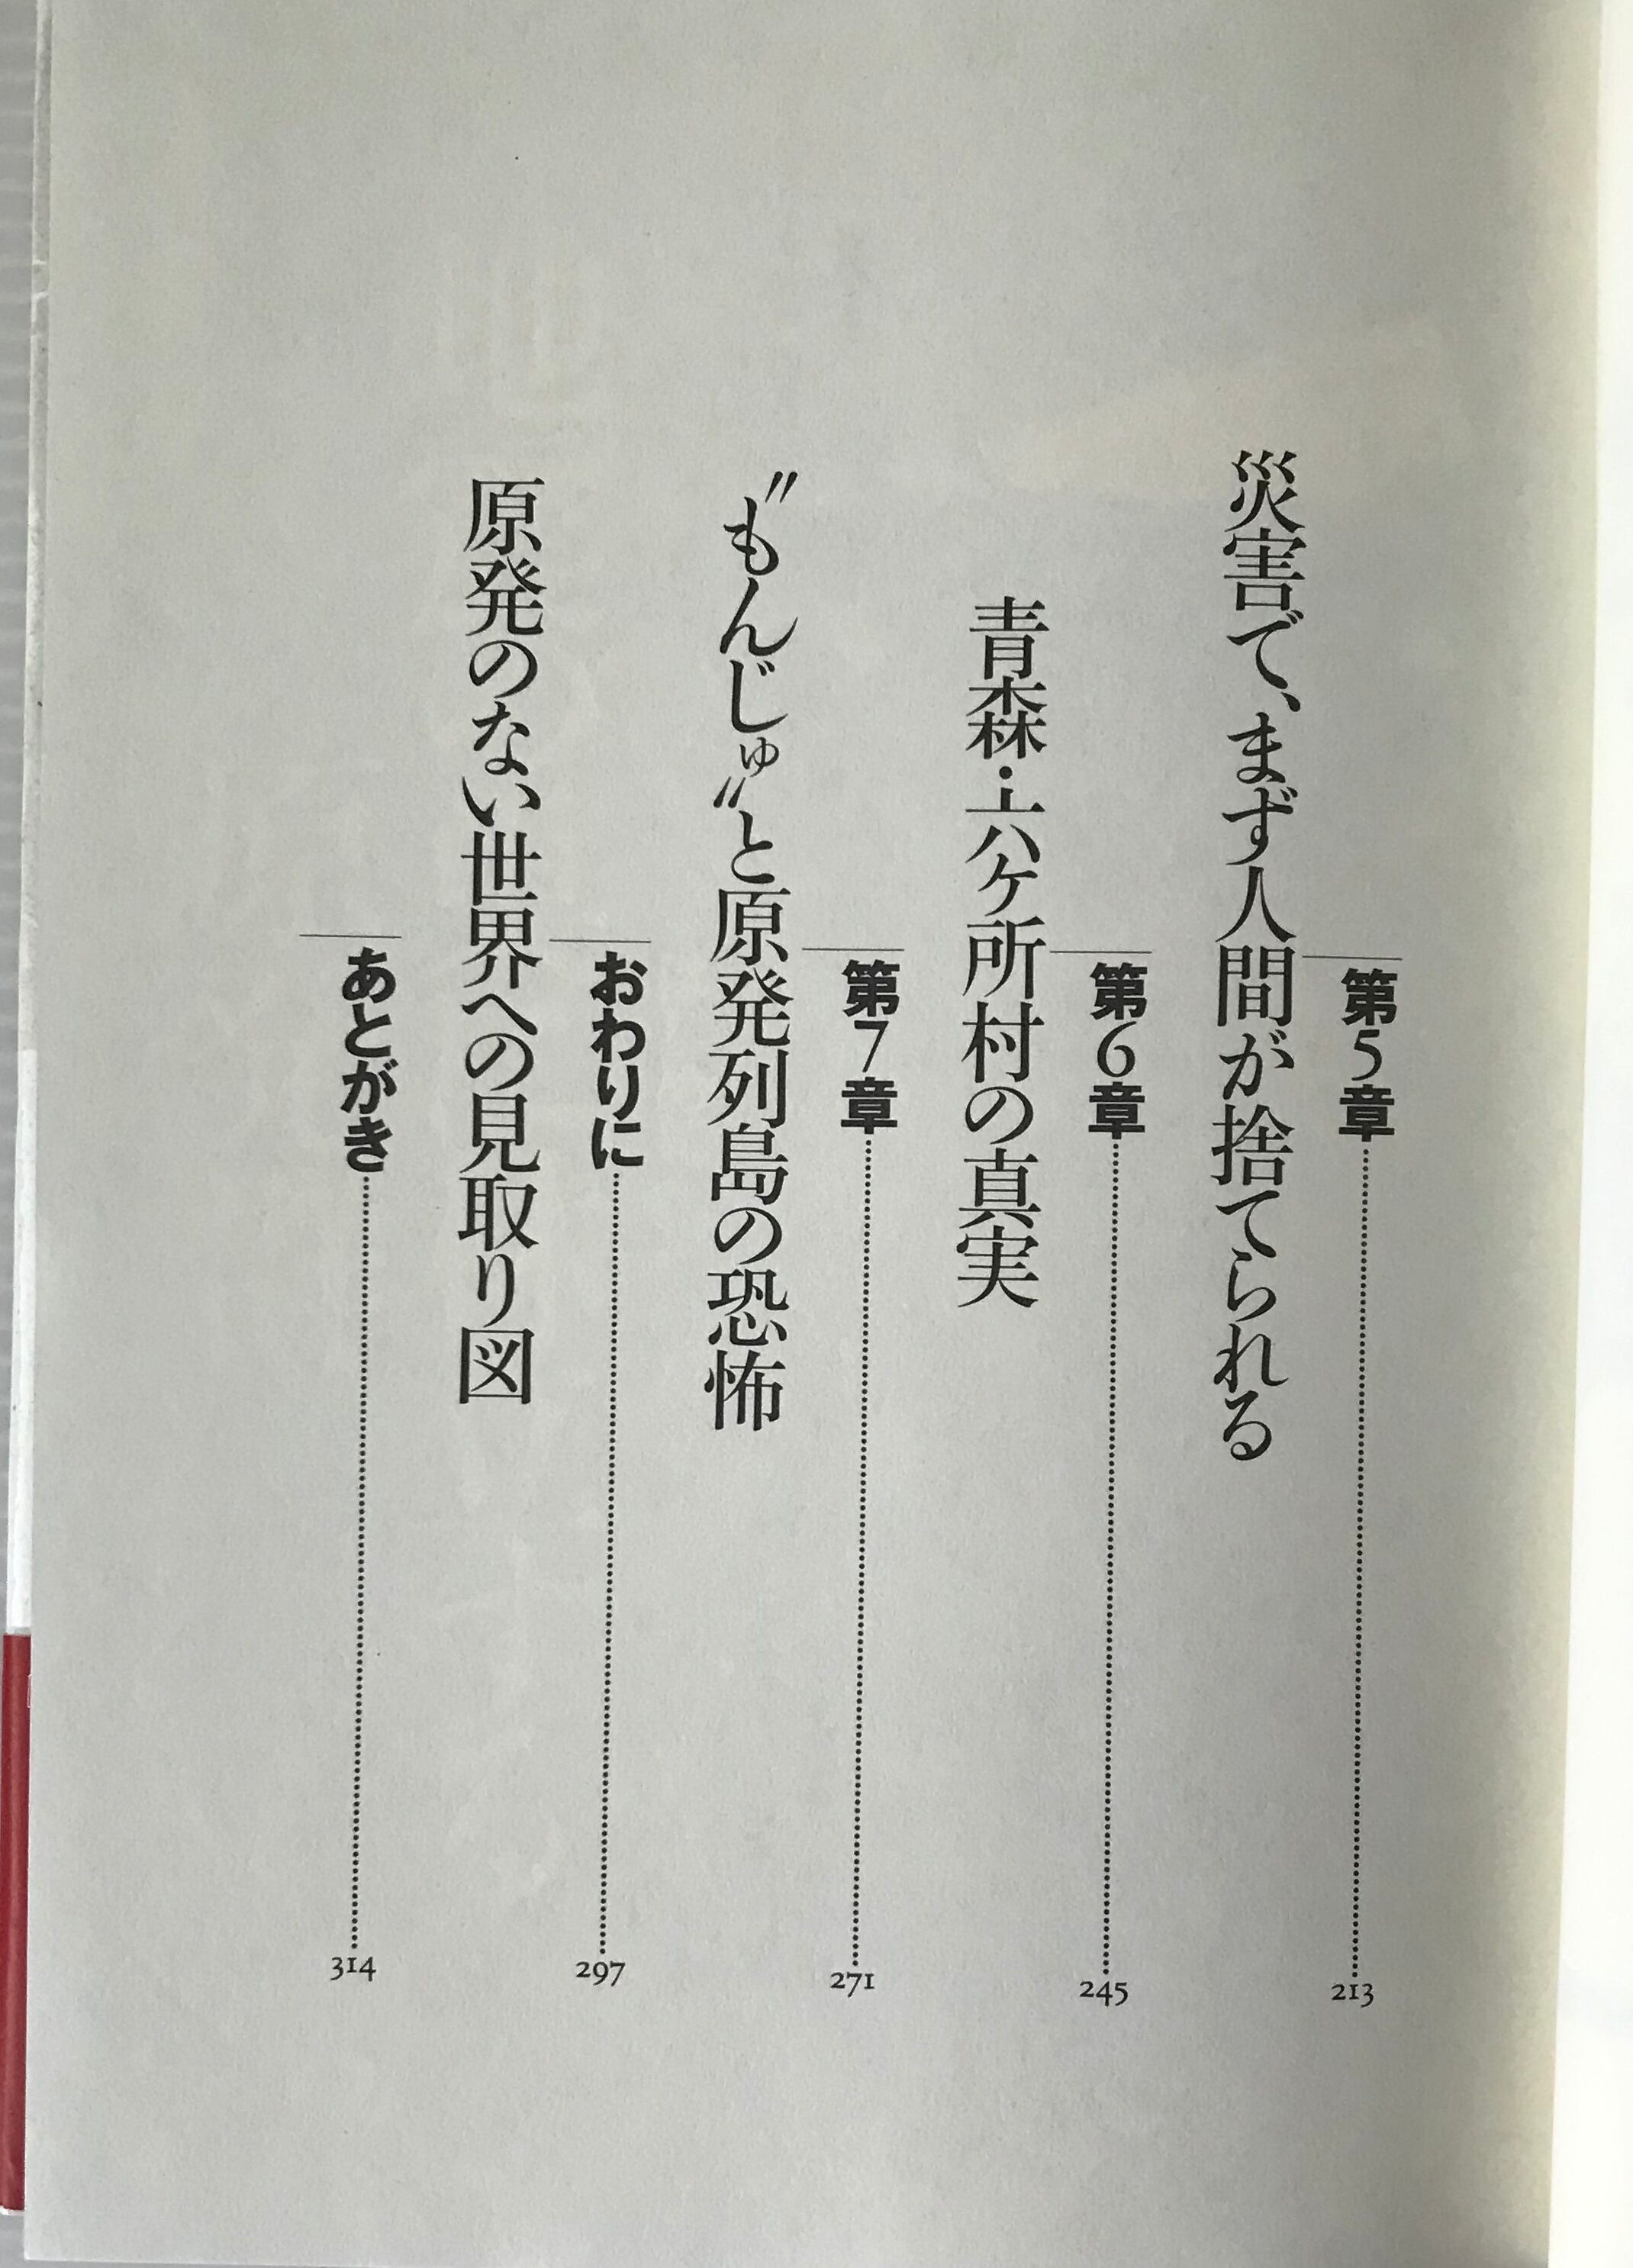 第5章 213
災害で、まず人間が捨てられる
第6章 245
青森・六ケ所村の真実
第7章 271
〝もんじゅ〟と原発列島の恐怖
おわりに 297
原発のない世界への見取り図
あとがき 314